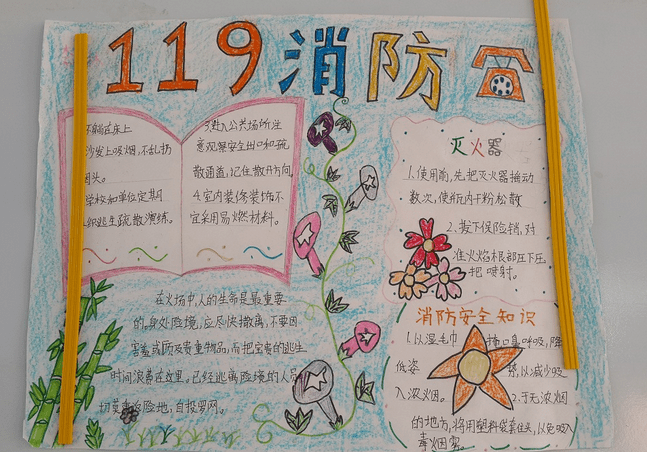 119消防
不躺在床上
沙发上吸烟,不乱扔
烟头。
学校和单位定期
组织逃生疏散演练。
3.进入公共场所注
意观察安全出口和疏
散通道,记住散开方向
4.室内装修装饰不
宜采用易燃材料。
在火场中,人的生命是最重要
的,身处险境,应尽快撤离,不要因
害羞或顾及贵重物品,而把宝贵的逃生
时间浪费在这里。已经逃离险境的人员
切莫重返险地,自投罗网。
灭火器
1.使用前,先把灭火器摇动
数次,使瓶内干粉松散
2.拔下保险销,对
准火焰根部压下压
把喷射。
消防安全知识
1.以湿毛巾 捂口鼻呼吸,降
低姿 势,以减少吸
入浓烟。 2.于无浓烟
的地方,将用塑料袋套住头,以免吸入
毒烟雾